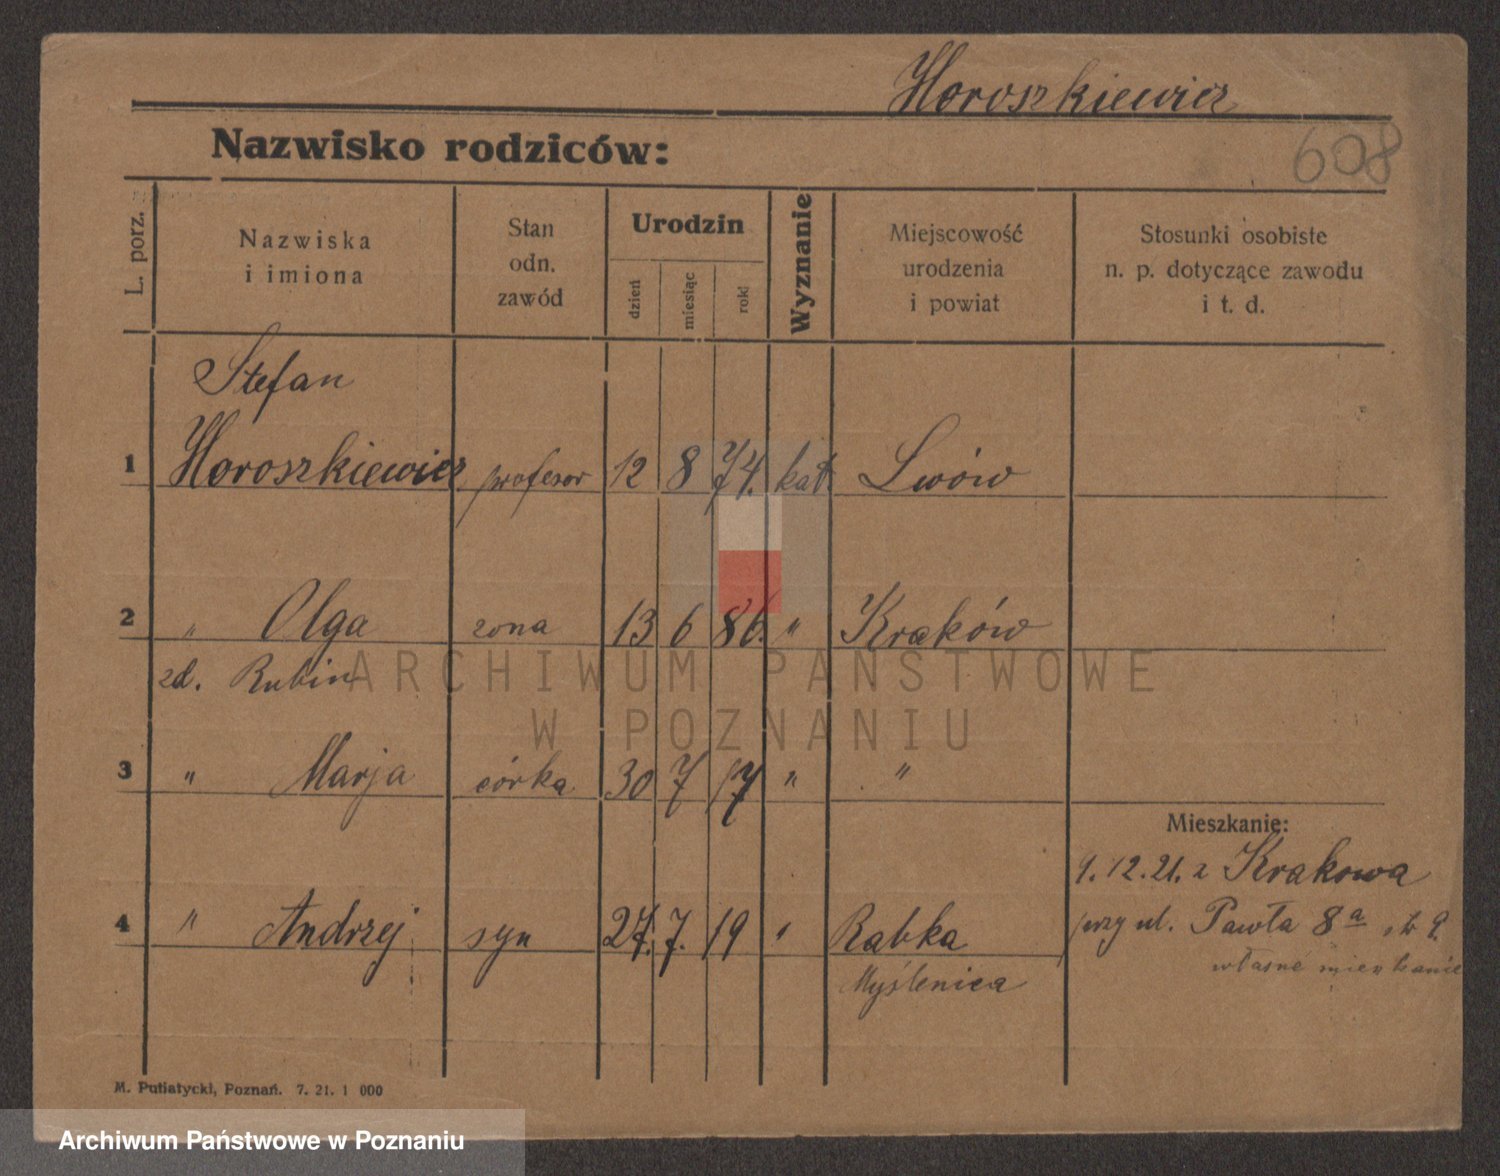 Horoszkiewicz
608
Nazwisko rodziców:
L. porz.
Nazwiska
i imiona
Stan
odn.
zawód
Urodzin
dzień
miesiąc
rok
Wyznanie
Miejscowość
urodzenia
i powiat
Stosunki osobiste
n. p. dotyczące zawodu
i t. d.
Stefan
1 Horoszkiewicz profesor 12 8 74. kat. Lwów
2 " Olga żona 13 6 86. " Kraków
zd. Rubin
ARCHIWUM PAŃSTWOWE
W POZNANIU
3 " Marja córka 30 7 17 " "
Mieszkanie:
9. 12. 21. z Krakowa
4 " Andrzej syn 27. 7. 19 " Rabka
przy ul. Pawła 8a 9.
własne mieszkanie
Myślenica
M. Putiatycki, Poznań. 7. 21. 1 000
Archiwum Państwowe w Poznaniu